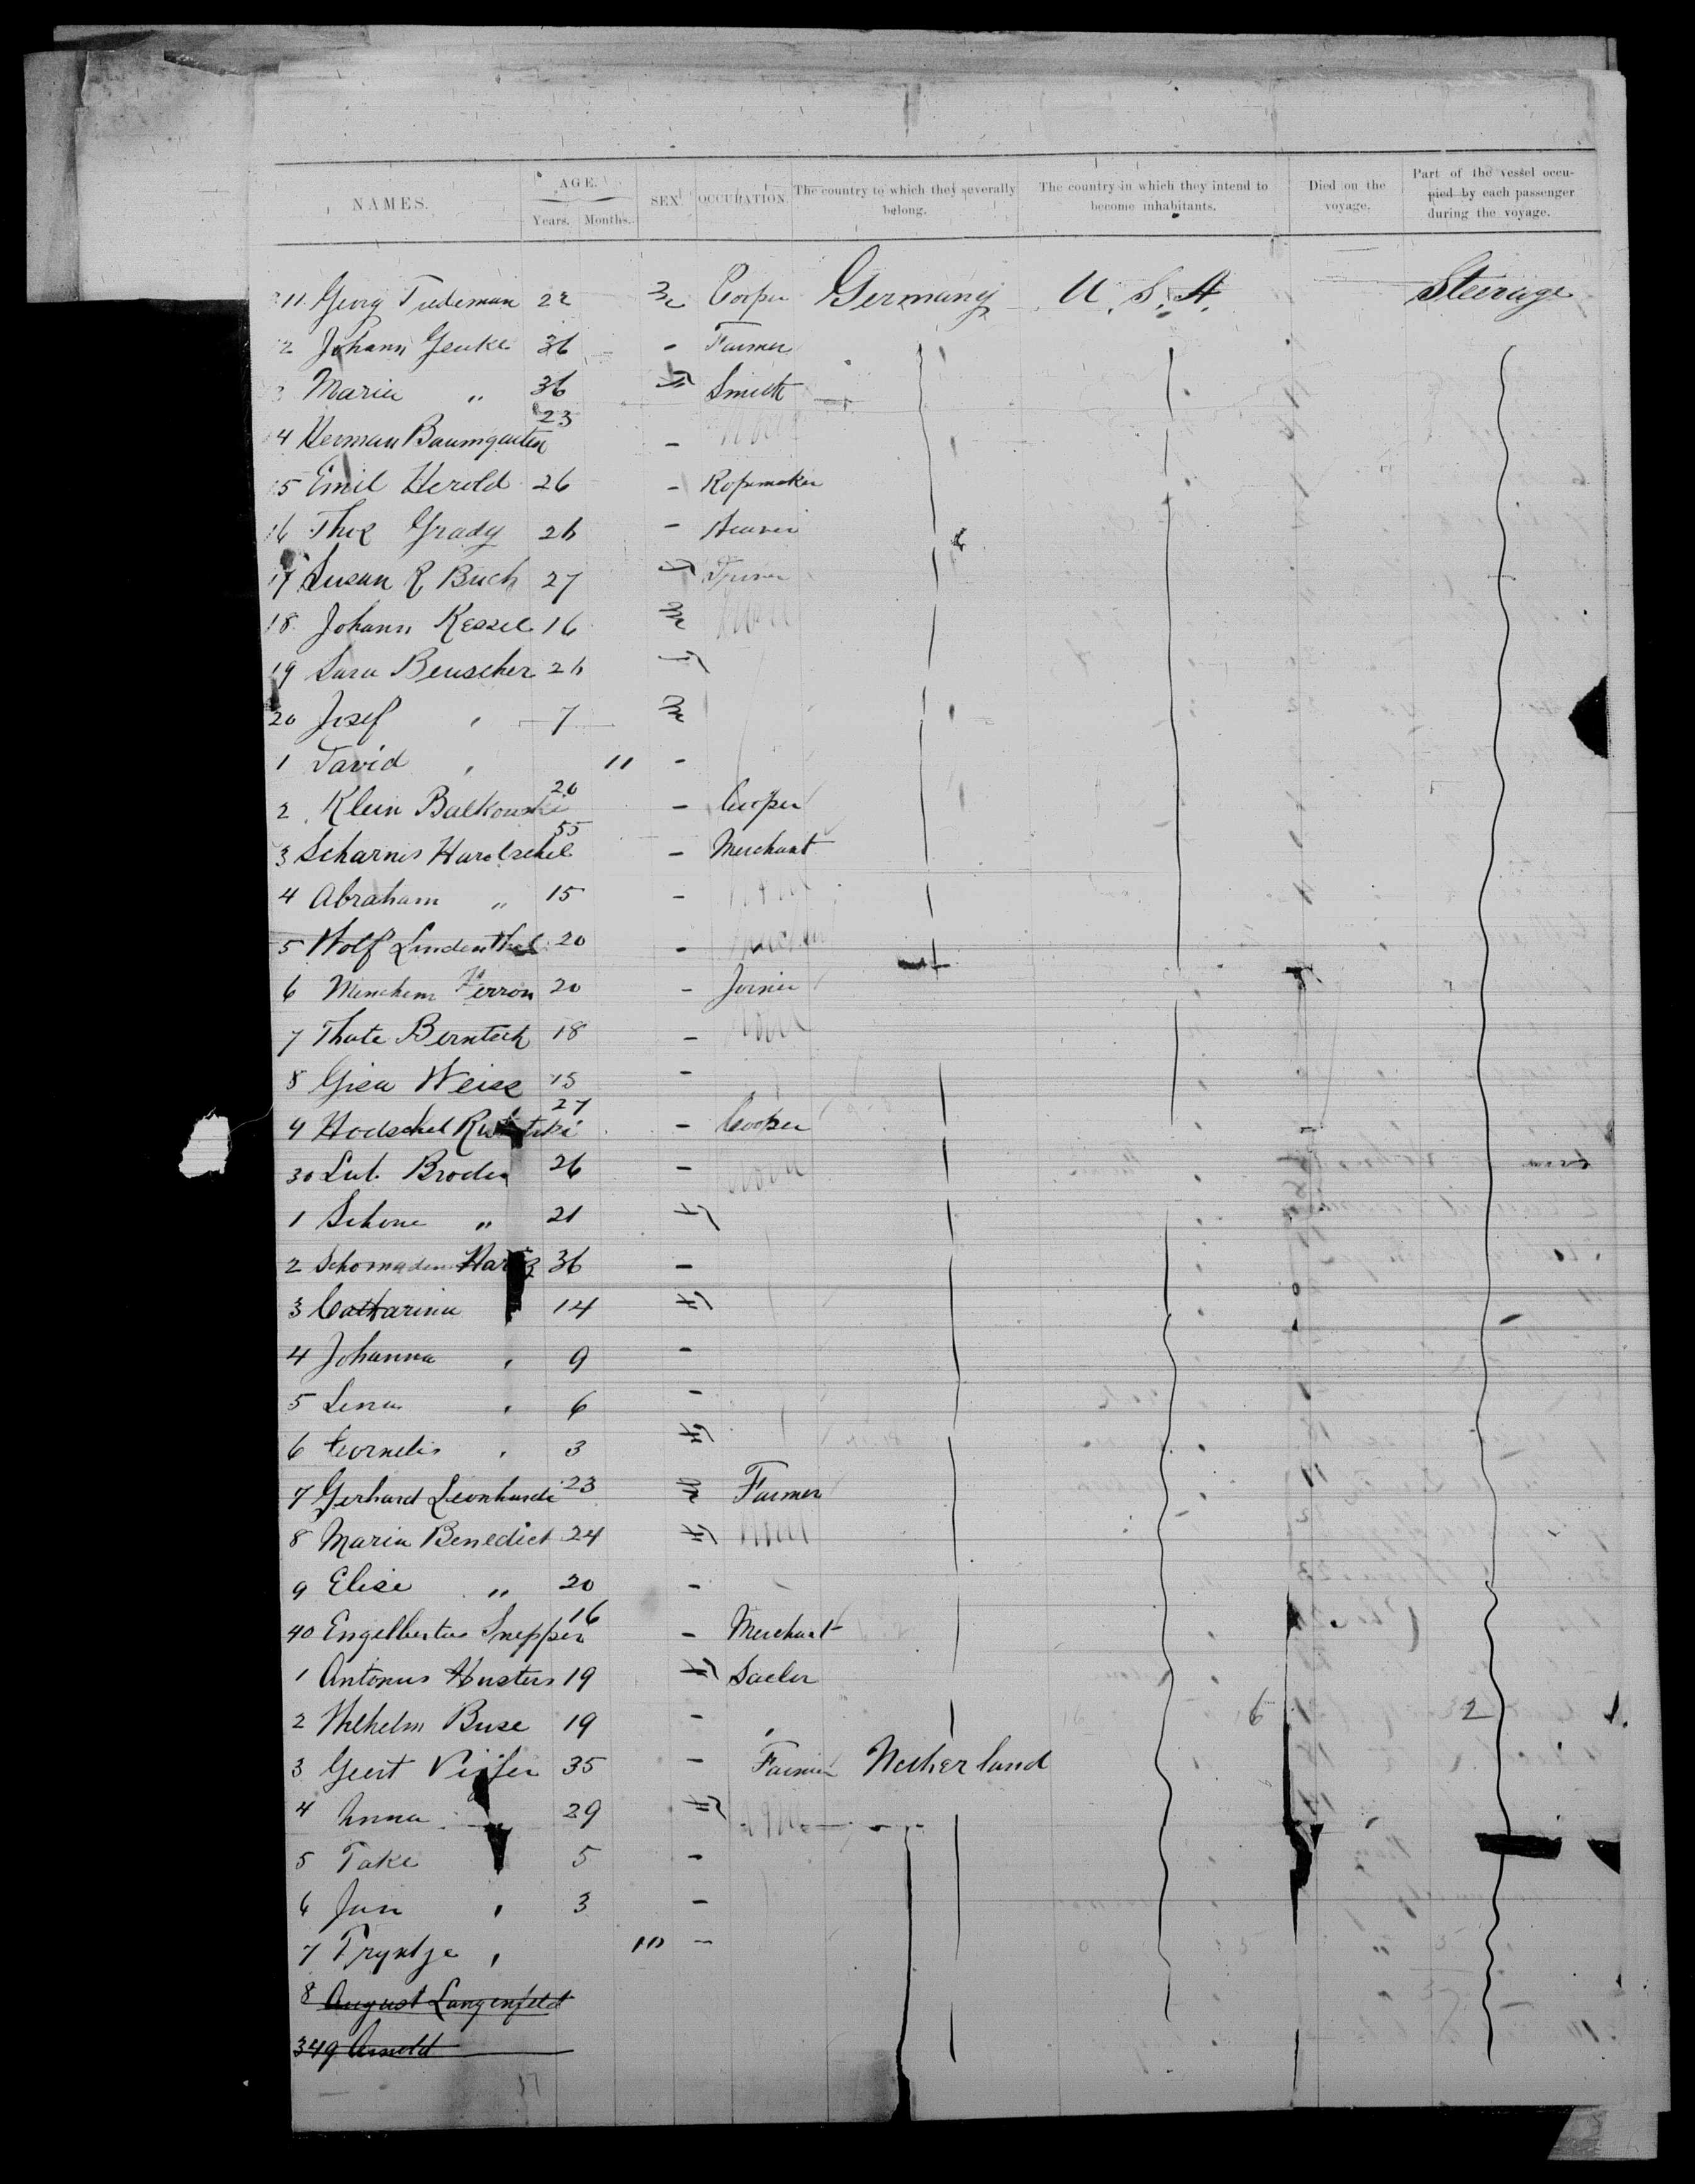 NAMES. AGE. Years. Months. SEX. OCCUPATION. The country to which they severally belong. The country in which they intend to become inhabitants. Died on the voyage. Part of the vessel occupied by each passenger during the voyage.
311 Georg Tiedeman 22 m Cooper Germany U. S. A. Steerage
2 Johann Genke 36 - Farmer
3 Maria " 36 f Smith
14 Herman Baumgarten 23 - None
15 Emil Herold 26 - Ropemaker
16 Ths Grady 26 -
17 Susan R Buch 27 f
18 Johann Kessel 16 m None
19 Sara Beuscher 26 f
20 Josef " 7 m
1 David " 11 -
2 Klein Balkowski 20 - Cooper
3 Scharnis 55 - Merchant
4 Abraham " 15 - None
5 Wolf Lindenthal 20 -
6 Menchem Ferron 20 - Joiner
7 Thate Berntech 18 - None
8 Gisa Weiss 15 -
9 Hodschel 27 - Cooper
30 Lub. Broder 26 - None
1 Schone " 21 f
2 36 -
3 Catharina 14 f
4 Johanna " 9 -
5 Lena " 6 -
6 Cornelis " 3 f
7 Gerhard Leonhardi 23 m Farmer
8 Maria Benedict 24 f None
9 Elise " 20 -
40 Engelbertus Snepper 16 - Merchant
1 Antonus Husters 19 f Sailor
2 Wilhelm Buse 19 - "
3 Geert Visser 35 - Farmer Netherland
4 Anna " 29 f None
5 Take 5 -
6 Jan " 3 -
7 Tryntje " 10 -
8 August Langenfeld
349 Arnold